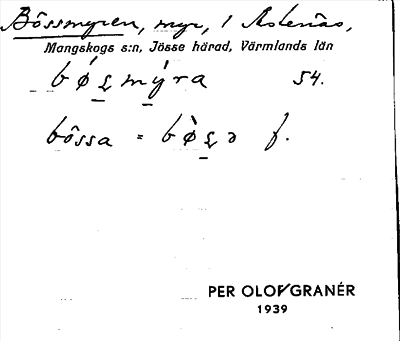 Bössmyren, myr, i Astenäs,
Mangskogs s:n, Jösse härad, Värmlands län
bǿs̲mýra 54.
bössa = bø̀s̲ə f.
PER OLOF GRANÉR
1939